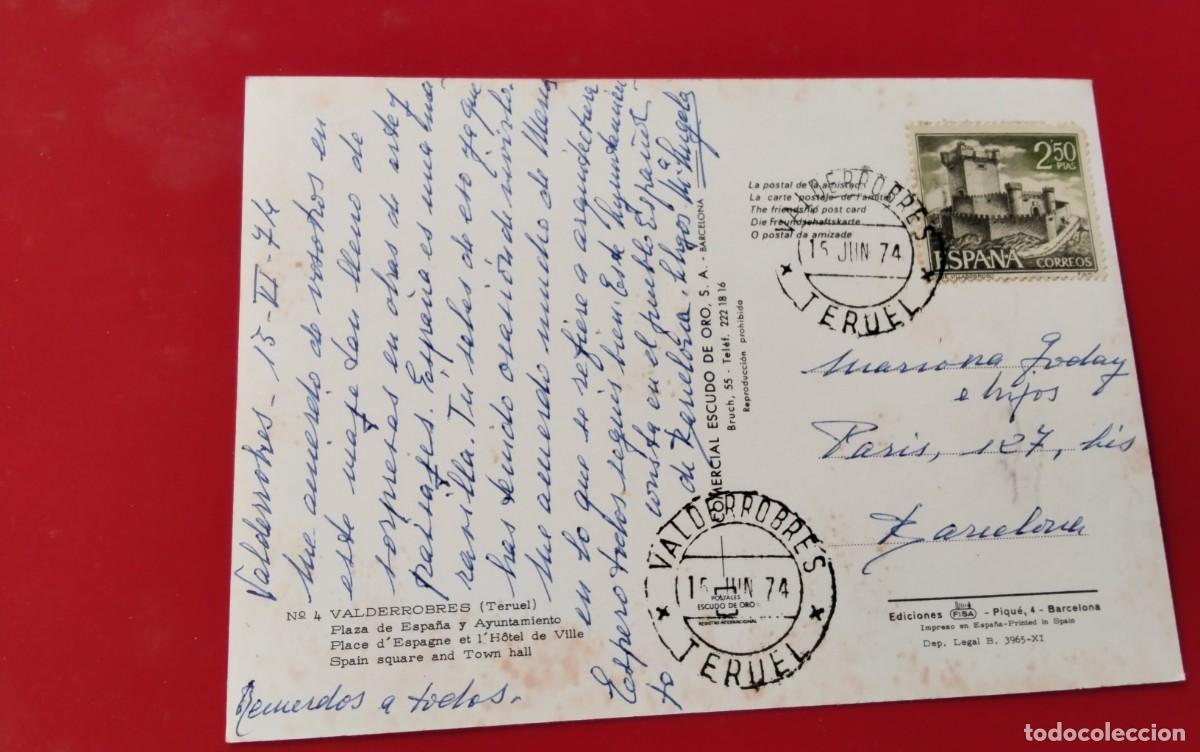 Valderrobres - 15-VI-74
Me acuerdo de vosotros en
este viaje tan lleno de
sorpresas en obras de arte y
paisajes. España es una ma
ravilla. Tu sabes de eso ya que
has tenido ocasión de vivirlo.
Me acuerdo mucho de
en lo que se refiere a arquitectura
Espero todos seguis bien. Este Ayuntamien
to consta en el pueblo Español
de Barcelona Abzos Mª Angela
Recuerdos a todos.
Nº 4 VALDERROBRES (Teruel)
Plaza de España y Ayuntamiento
Place d'Espagne et l'Hôtel de Ville
Spain square and Town hall
COMERCIAL ESCUDO DE ORO, S. A. - BARCELONA
Bruch, 55 - Teléf. 222 18 16
Reproducción prohibida
La postal de la amistad
La carte postale de l'amitié
The friendship post card
Die Freundschaftskarte
O postal da amizade
2'50
PTAS
ESPAÑA
CORREOS
VALDERROBRES
15 JUN 74
TERUEL
Mariona Goday
e hijos
Paris, 127, bis
Barcelona
VALDERROBRES
15 JUN 74
TERUEL
POSTALES
ESCUDO DE ORO
REGISTRO INTERNACIONAL
Ediciones FISA - Piqué, 4 - Barcelona
Impreso en España-Printed in Spain
Dep. Legal B. 3965-XI
todocoleccion